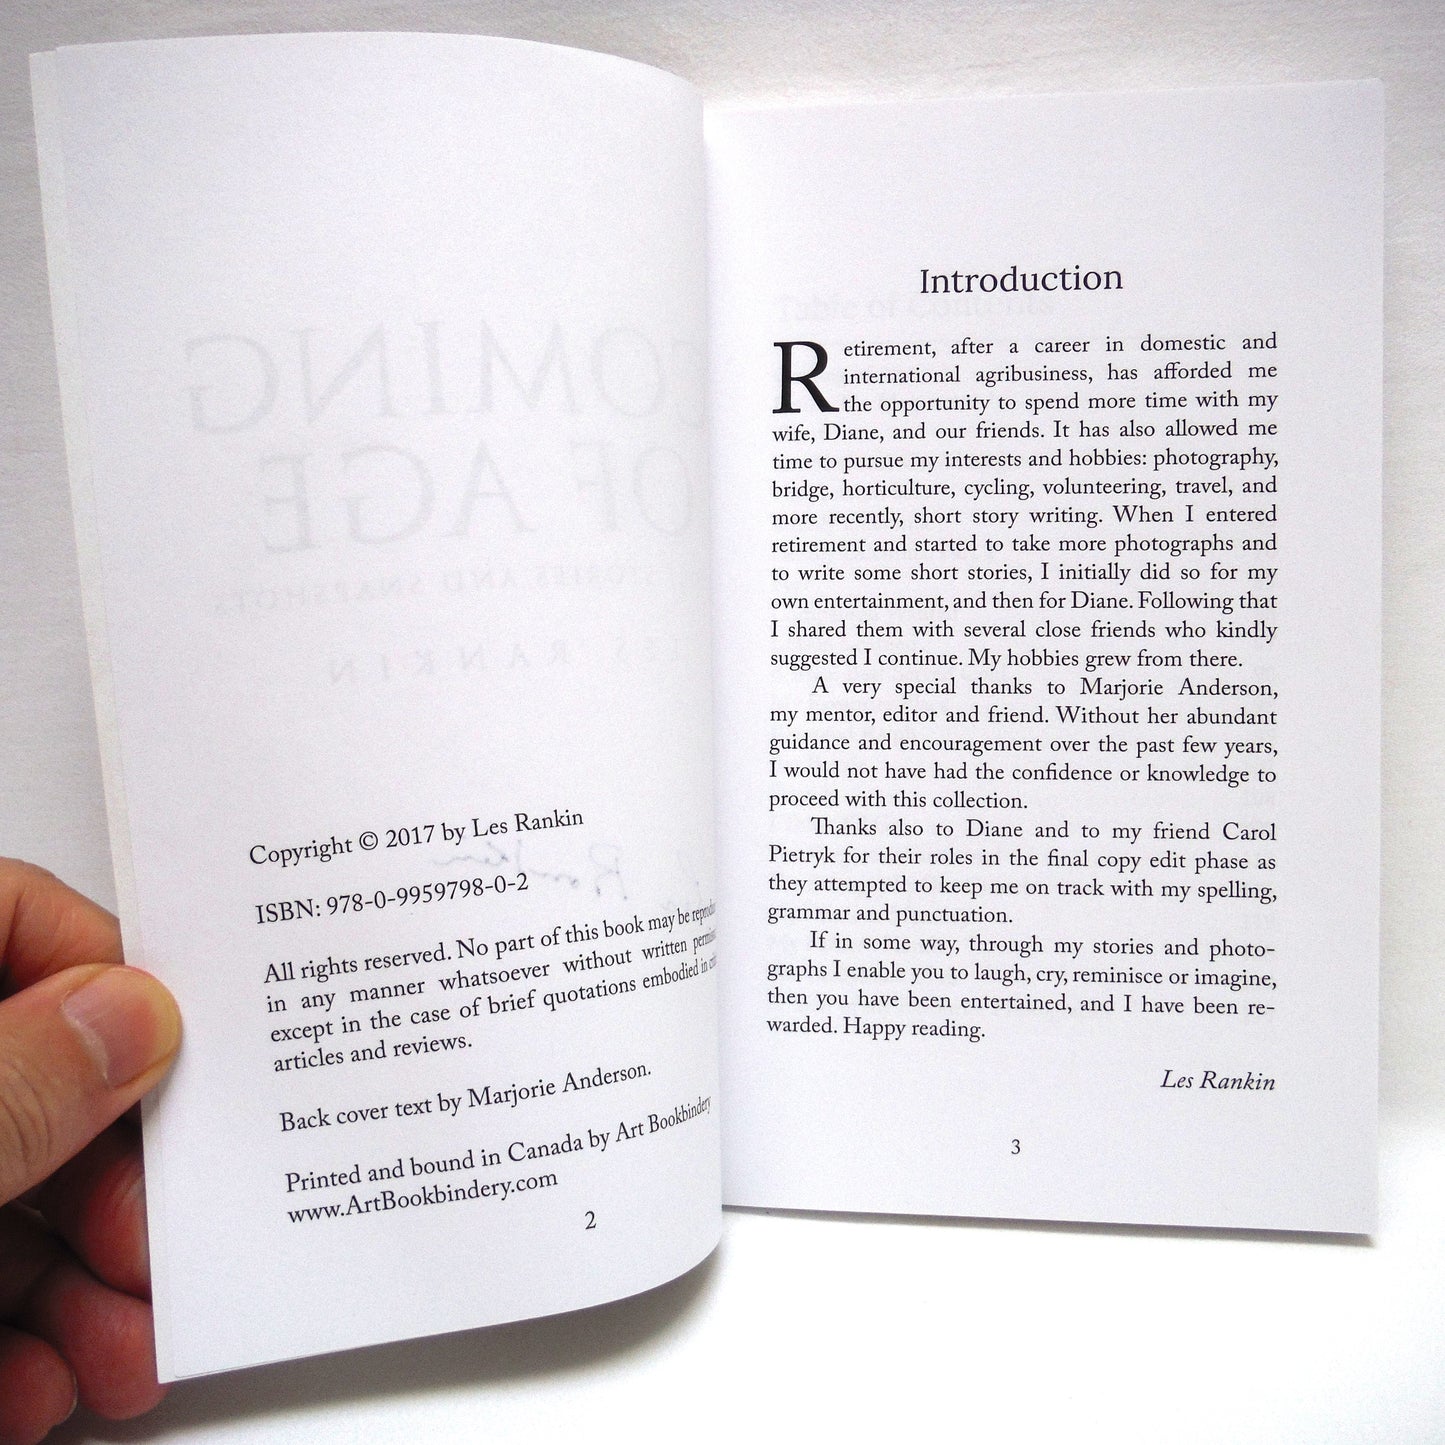 Copyright © 2017 by Les Rankin
ISBN: 978-0-9959798-0-2
All rights reserved. No part of this book may be
in any manner whatsoever without written
except in the case of brief quotations embodied in
articles and reviews.
Back cover text by Marjorie Anderson.
Printed and bound in Canada by Art Bookbindery
www.ArtBookbindery.com
2
Introduction
Retirement, after a career in domestic and
international agribusiness, has afforded me
the opportunity to spend more time with my
wife, Diane, and our friends. It has also allowed me
time to pursue my interests and hobbies: photography,
bridge, horticulture, cycling, volunteering, travel, and
more recently, short story writing. When I entered
retirement and started to take more photographs and
to write some short stories, I initially did so for my
own entertainment, and then for Diane. Following that
I shared them with several close friends who kindly
suggested I continue. My hobbies grew from there.
A very special thanks to Marjorie Anderson,
my mentor, editor and friend. Without her abundant
guidance and encouragement over the past few years,
I would not have had the confidence or knowledge to
proceed with this collection.
Thanks also to Diane and to my friend Carol
Pietryk for their roles in the final copy edit phase as
they attempted to keep me on track with my spelling,
grammar and punctuation.
If in some way, through my stories and photo-
graphs I enable you to laugh, cry, reminisce or imagine,
then you have been entertained, and I have been re-
warded. Happy reading.
Les Rankin
3